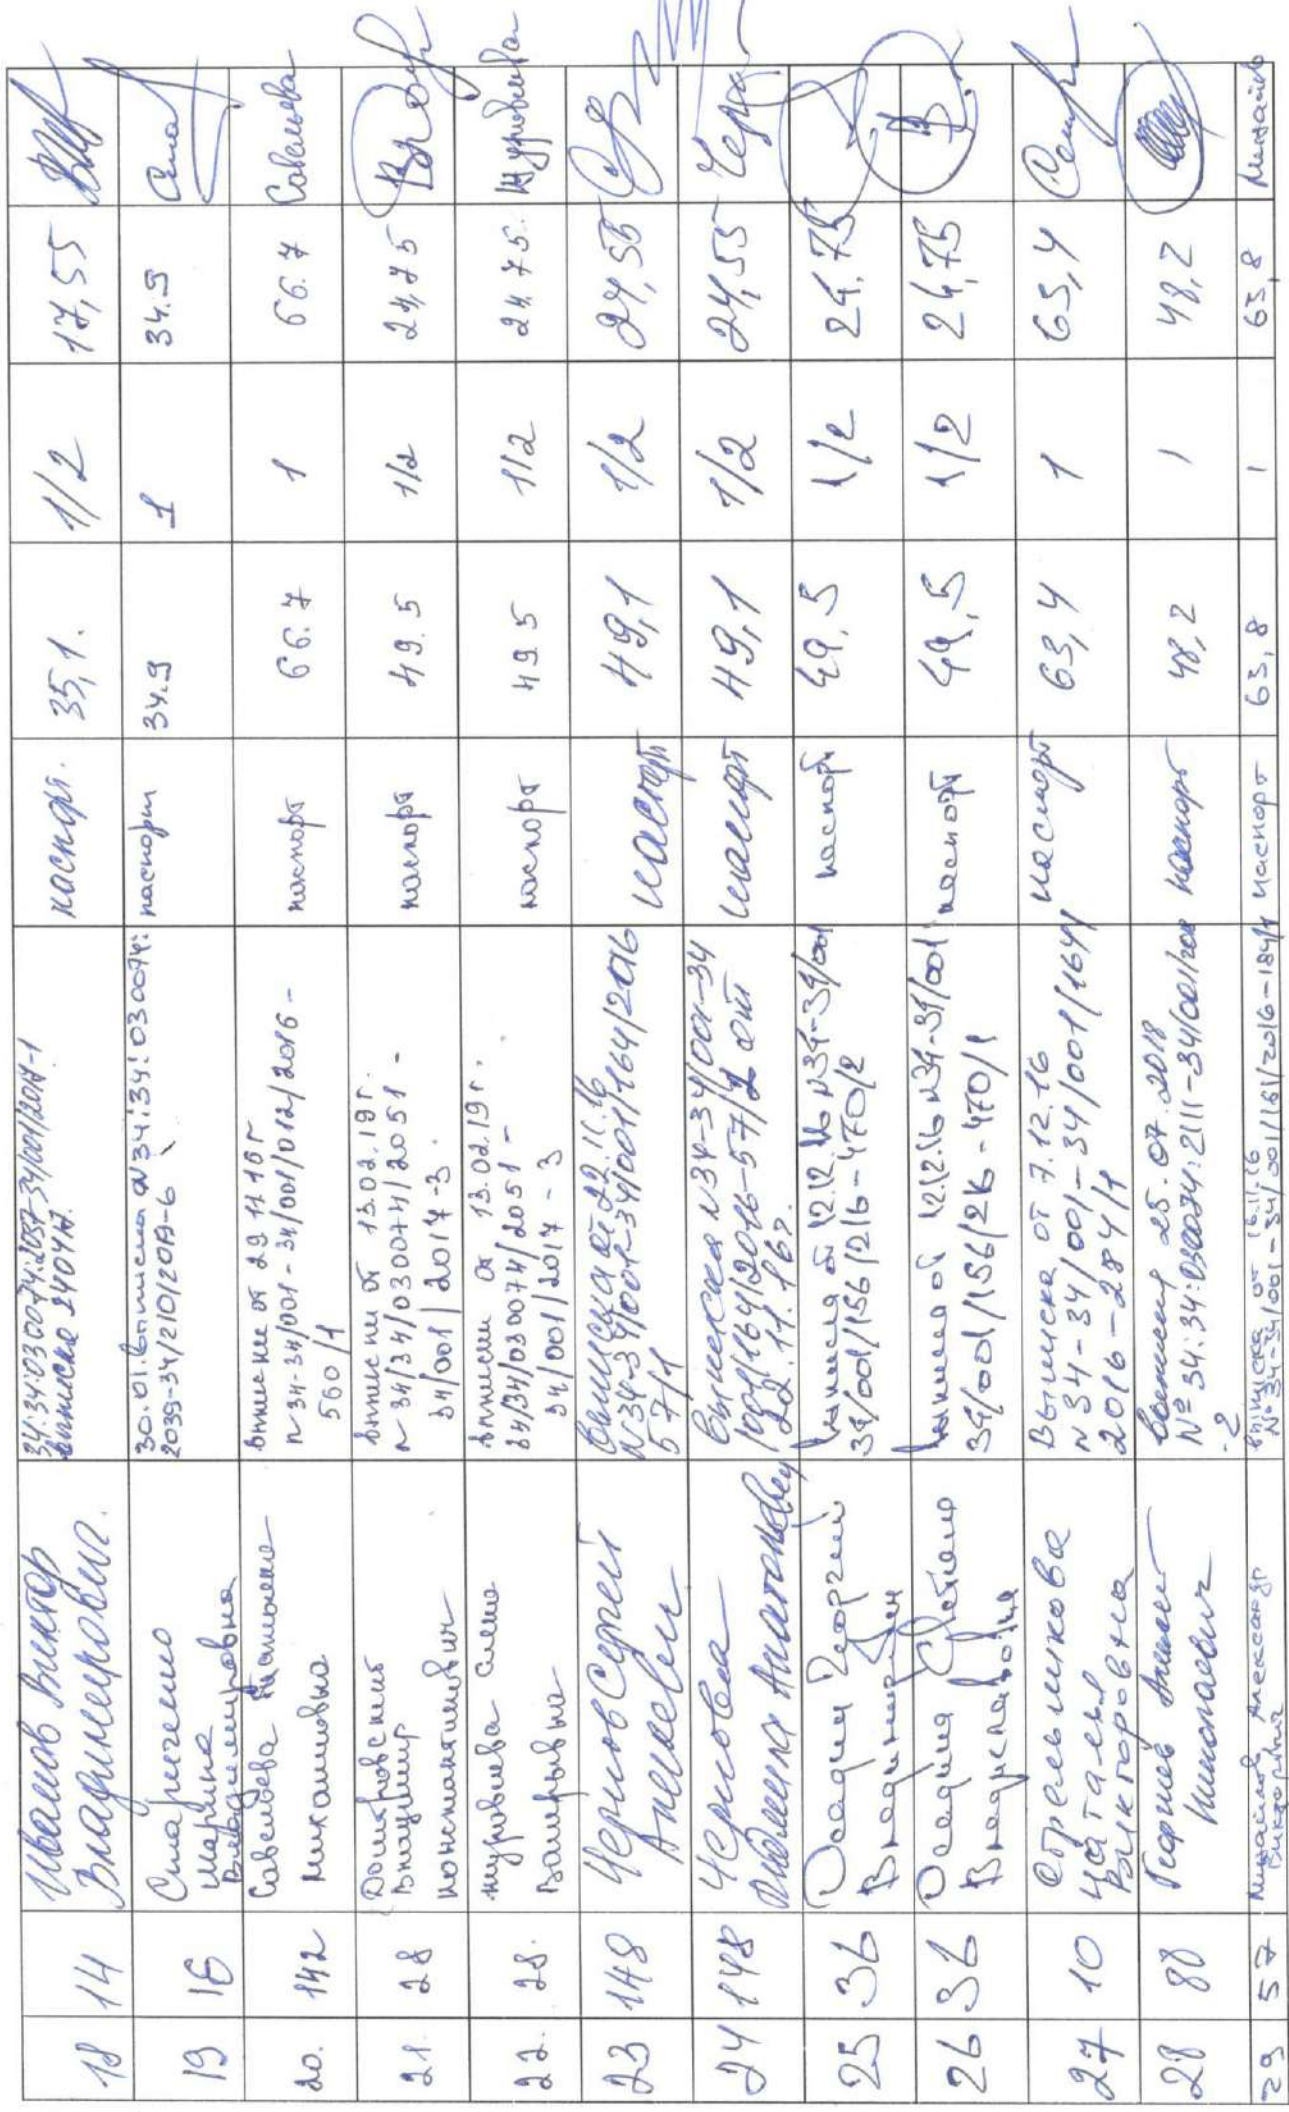 18 14 Иванов Виктор
Владимирович.
34:34:030074:2037-34/001/2017-1
выписка 240417.
паспорт. 35,1. 1/2 17,55
19 16
Марина
Владимировна
30.01. выписка N34:34:030074:
2039-34/210/2019-6
паспорт 34.9 1 34.9
20. 142 Савельева
Михайловна
29 11 16г
N34-34/001-34/001/012/2016-
560/1
паспорт 66.7 1 66.7 Савельева
21. 28 Домбровский
Владимир
Константинович
от 13.02.19г.
N34/34/030074/2051-
34/001/2017-3.
паспорт 49.5 1/2 24,75
22. 28.
Валерьевна
от 13.02.19г.
34/34/030074/2051-
34/001/2017-3
паспорт 49 5 1/2 24 75.
23 148 Чернов Сергей
Алексеевич
выписка от 22.11.16
N34-34/001-34/001/164/2016
57/1
паспорт 49,1 1/2 24,55
24 148 Чернова
Людмила Анатольевна
выписка N34-34/001-34
/001/164/2016-57/2 от
22.11.16г.
паспорт 49,1 1/2 24,55
25 36 Осадчий Георгий
Владимирович
выписка от 12.12.16 N34-34/001
34/001/156/216-470/2
паспорт 49,5 1/2 24,75
26 36 Осадчая Светлана
Владиславовна
выписка от 12.12.16 N34-34/001
34/001/156/216-470/1
паспорт 49,5 1/2 24,75
27 10 Стрельникова
Наталья
Викторовна
Выписка от 7.12.16
N34-34/001-34/001/164/
2016-284/1
паспорт 63,4 1 63,4
28 80
Николаевич
25.07.2018
№34:34:030074:2111-34/001/201
-2
паспорт 48,2 1 48,2
29 57 Михайлов Александр
Викторович
выписка от 16.11.16
№34-34/001-34/001/161/2016-184/1
паспорт 63,8 1 63,8